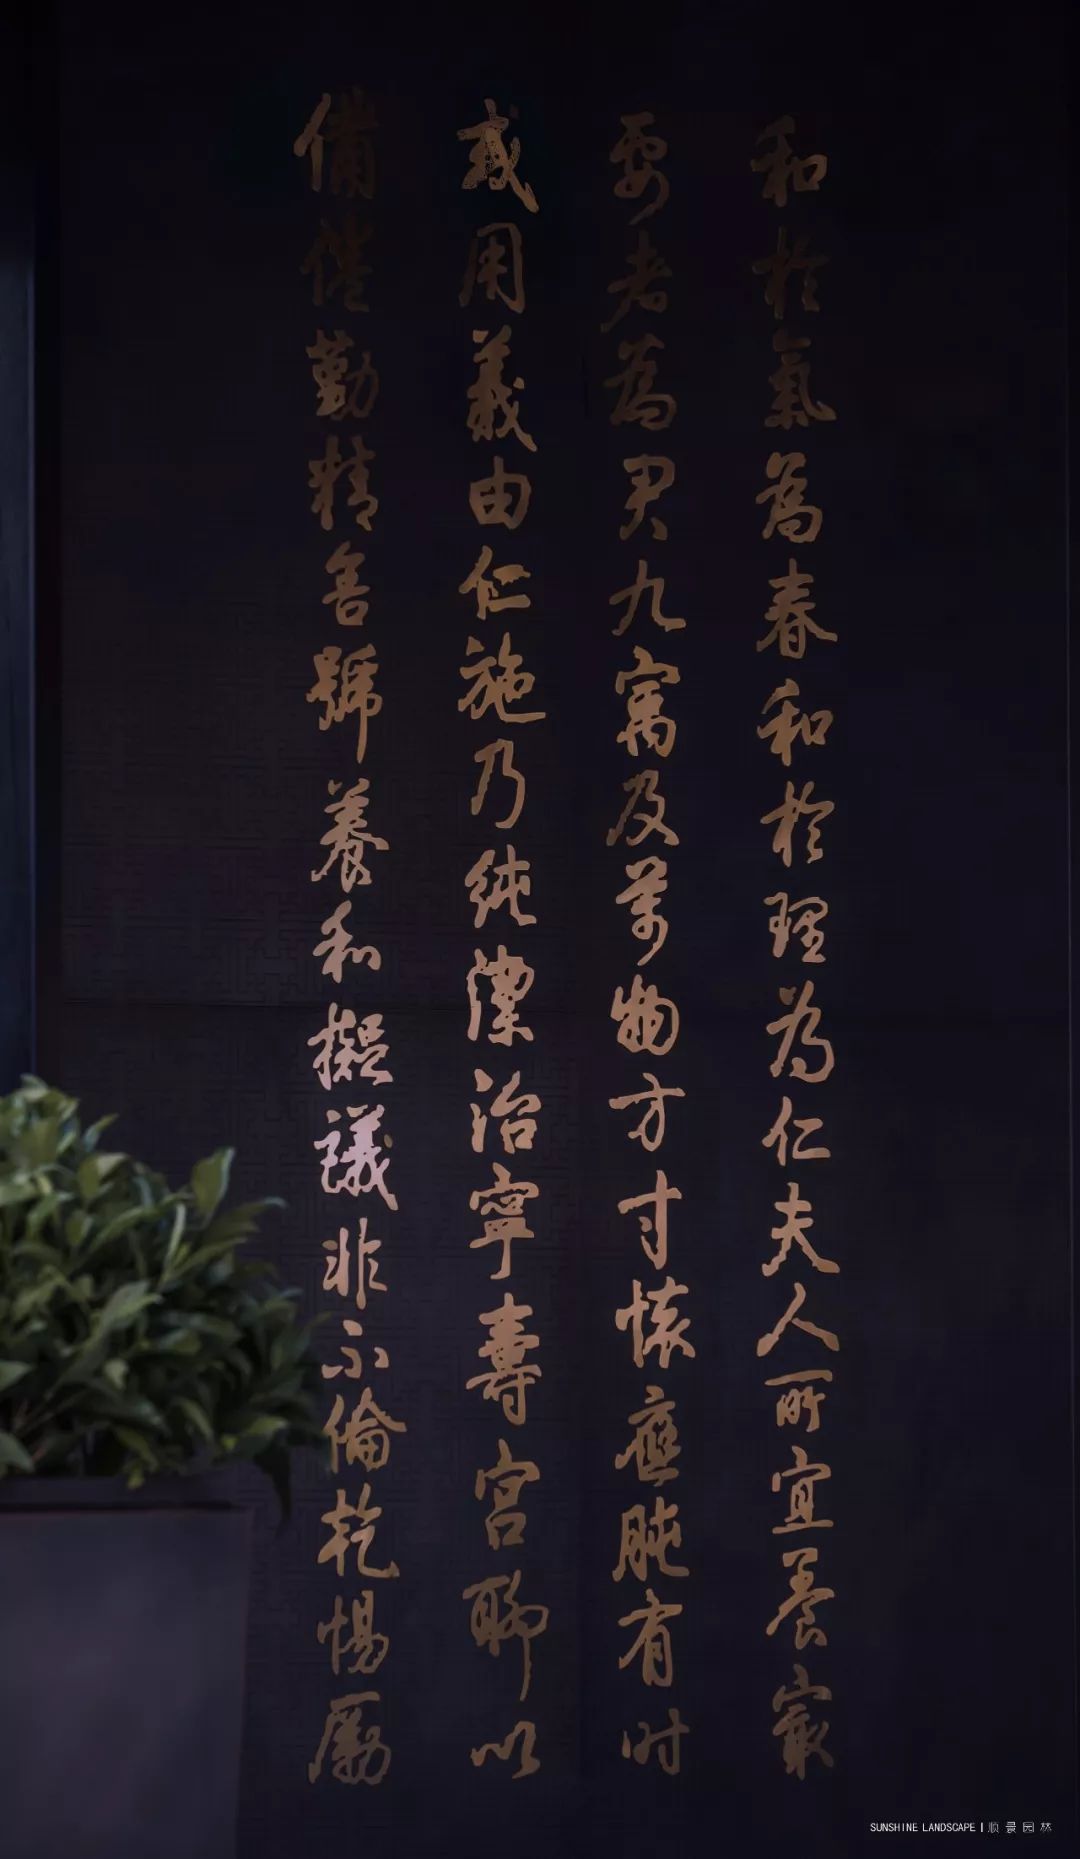 和於氣為春和於理為仁夫人所宜養最
要者為君九寓及萬物方寸懷應肫有時
或用義由仁施乃純潔治寧壽宮聊以
備倦勤精舍號養和擬議非不倫乾惕勵
SUNSHINE LANDSCAPE | 顺景园林